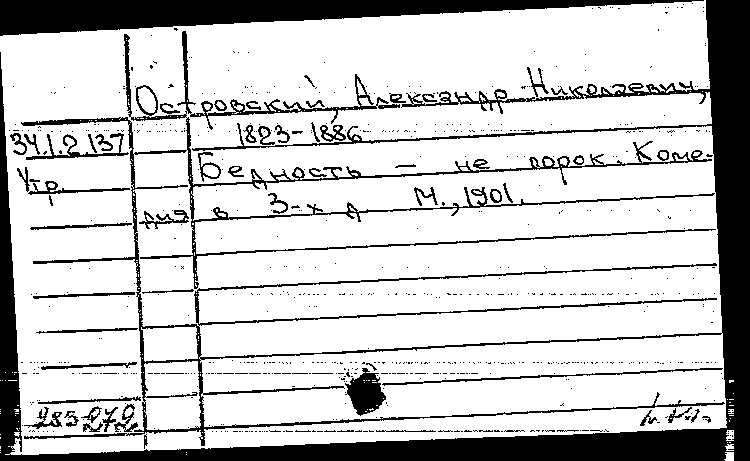 Островский, Александр Николаевич,
34.1.2.137 1823-1886
Утр. Бедность — не порок. Коме-
дия в 3-х д М., 1901.
283272